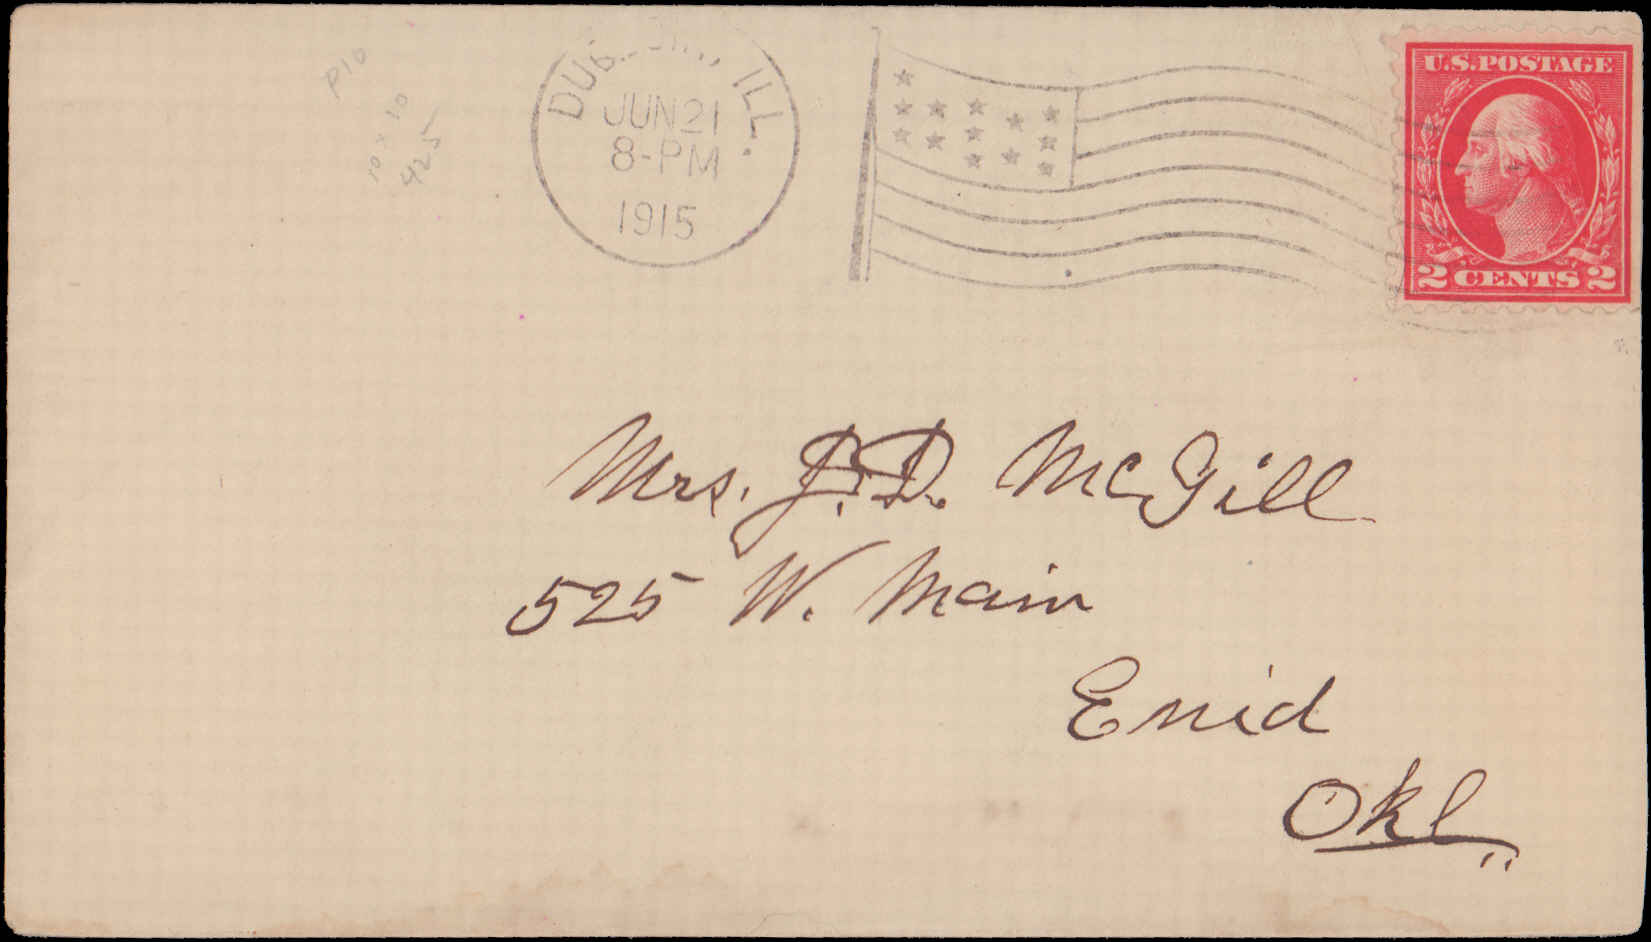 P10
10 x 10
425
ILL.
JUN 21
8-PM
1915
U.S. POSTAGE
2 CENTS 2
Mrs. J. D. McGill
525 W. Main
Enid
Okl.